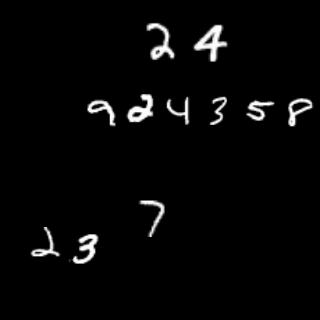 24
924358
7
23